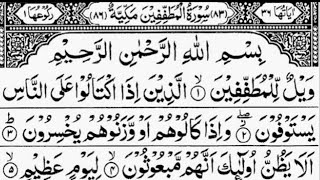 اٰيَاتُهَا ٣٦ (٨٣) سُوْرَةُ الْمُطَفِّفِيْنَ مَكِّيَّةٌ (٨٦) رُكُوْعُهَا ١
بِسْمِ اللّٰهِ الرَّحْمٰنِ الرَّحِيْمِ
وَيْلٌ لِّلْمُطَفِّفِيْنَ ۙ﴿۱﴾ الَّذِيْنَ اِذَا اكْتَالُوْا عَلَى النَّاسِ
يَسْتَوْفُوْنَ ۖ﴿۲﴾ وَاِذَا كَالُوْهُمْ اَوْ وَّزَنُوْهُمْ يُخْسِرُوْنَ ؕ﴿۳﴾
اَلَا يَظُنُّ اُولٰٓئِكَ اَنَّهُمْ مَّبْعُوْثُوْنَ ۙ﴿۴﴾ لِيَوْمٍ عَظِيْمٍ ۙ﴿۵﴾